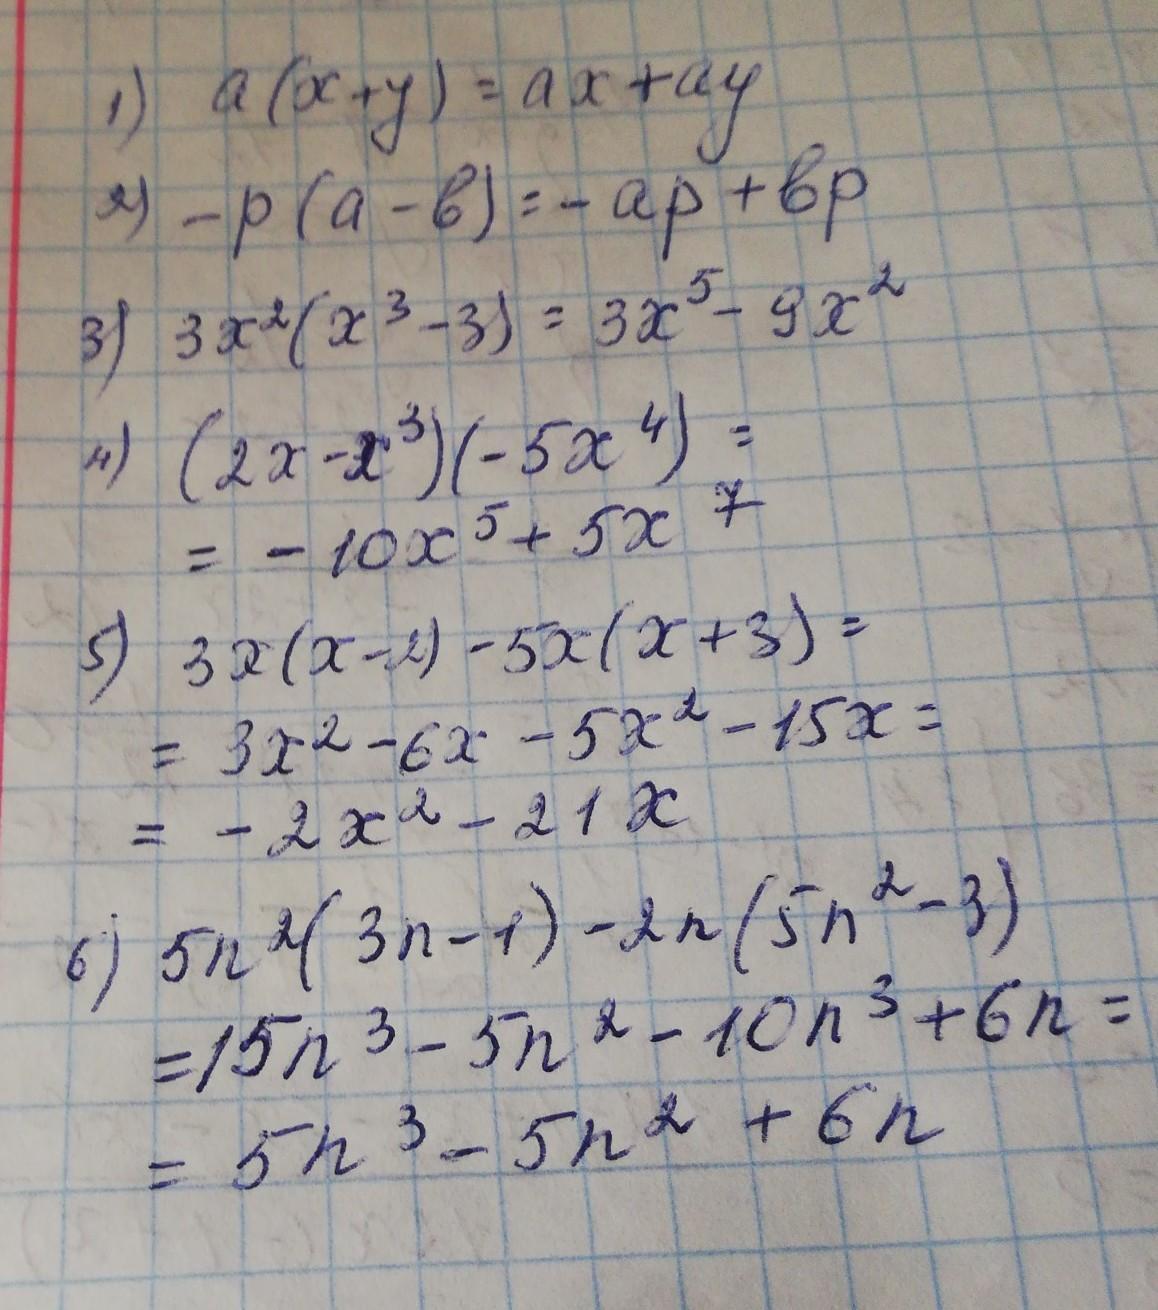 1) a(x+y)=ax+ay
2) -p(a-в)=-ap+вp
3) 3x²(x³-3)=3x⁵-9x²
4) (2x-x³)(-5x⁴)=
=-10x⁵+5x⁷
5) 3x(x-2)-5x(x+3)=
=3x²-6x-5x²-15x=
=-2x²-21x
6) 5n²(3n-1)-2n(5n²-3)
=15n³-5n²-10n³+6n=
=5n³-5n²+6n